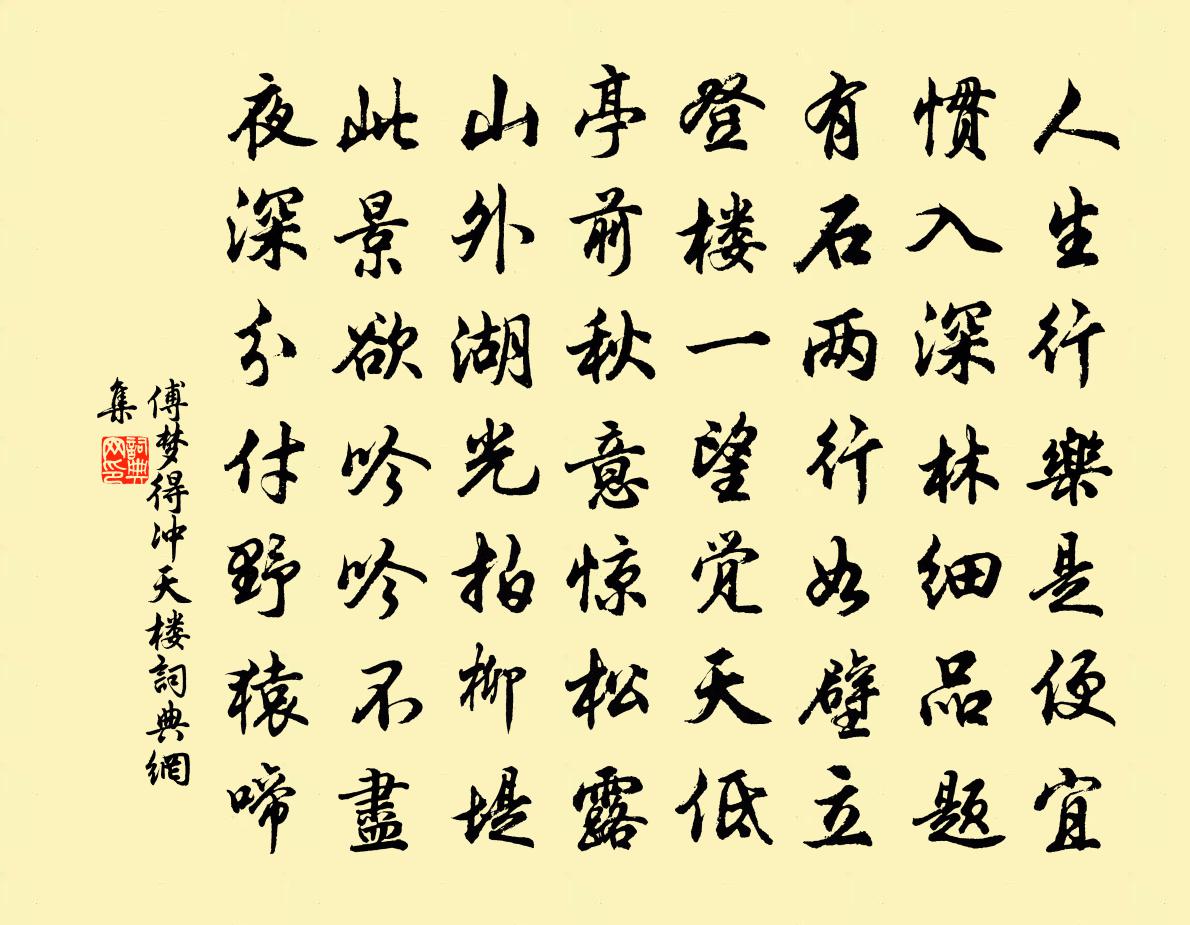 人生行樂是便宜
慣入深林细品题
有石两行如壁立
登楼一望觉天低
亭前秋意惊松露
山外湖光拍柳堤
此景欲吟吟不盡
夜深分付野猿啼
傅梦得冲天楼詞典網
集
詞典
网印